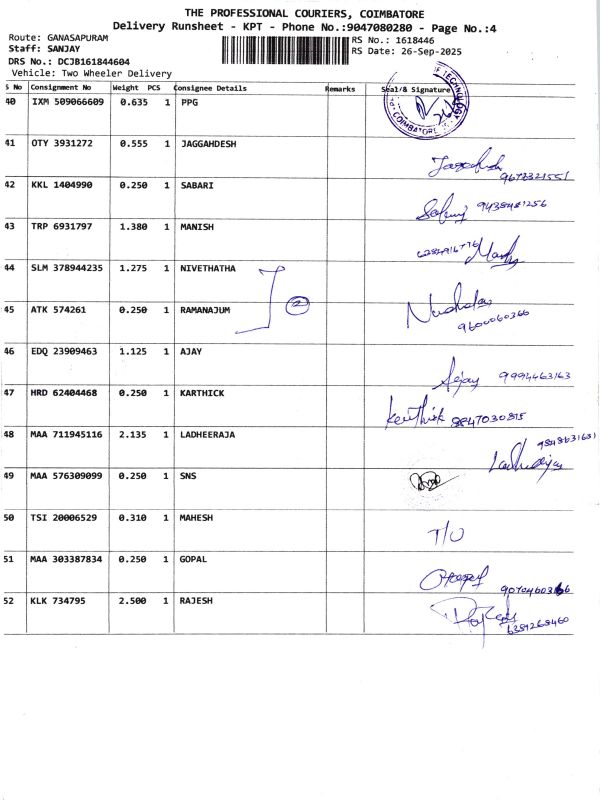 THE PROFESSIONAL COURIERS, COIMBATORE
Delivery Runsheet - KPT - Phone No.:9047080280 - Page No.:4
Route: GANASAPURAM
RS No.: 1618446
Staff: SANJAY
RS Date: 26-Sep-2025
DRS No.: DCJB161844604
Vehicle: Two Wheeler Delivery
S No Consignment No Weight PCS Consignee Details Remarks Seal/& Signature
40 IXM 509066609 0.635 1 PPG
OF TECHNOLOGY COIMBATORE
41 OTY 3931272 0.555 1 JAGGAHDESH
42 KKL 1404990 0.250 1 SABARI
43 TRP 6931797 1.380 1 MANISH
44 SLM 378944235 1.275 1 NIVETHATHA
45 ATK 574261 0.250 1 RAMANAJUM 2
9600060366
46 EDQ 23909463 1.125 1 AJAY Ajay 9994463163
47 HRD 62404468 0.250 1 KARTHICK Karthick
48 MAA 711945116 2.135 1 LADHEERAJA
49 MAA 576309099 0.250 1 SNS
50 TSI 20006529 0.310 1 MAHESH T/O
51 MAA 303387834 0.250 1 GOPAL
52 KLK 734795 2.500 1 RAJESH
6384268460